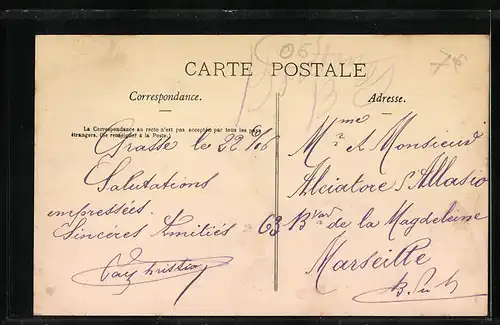 CARTE POSTALE
Correspondance.
La Correspondance au recto n'est pas acceptée par tous les pays
étrangers. (Se renseigner à la Poste.)
Grasse le 22
Salutations
empressées.
Sincéres Amitiés
Adresse.
Mme et Monsieur
Alciatore
63 Bvard de la Magdeleine
Marseille